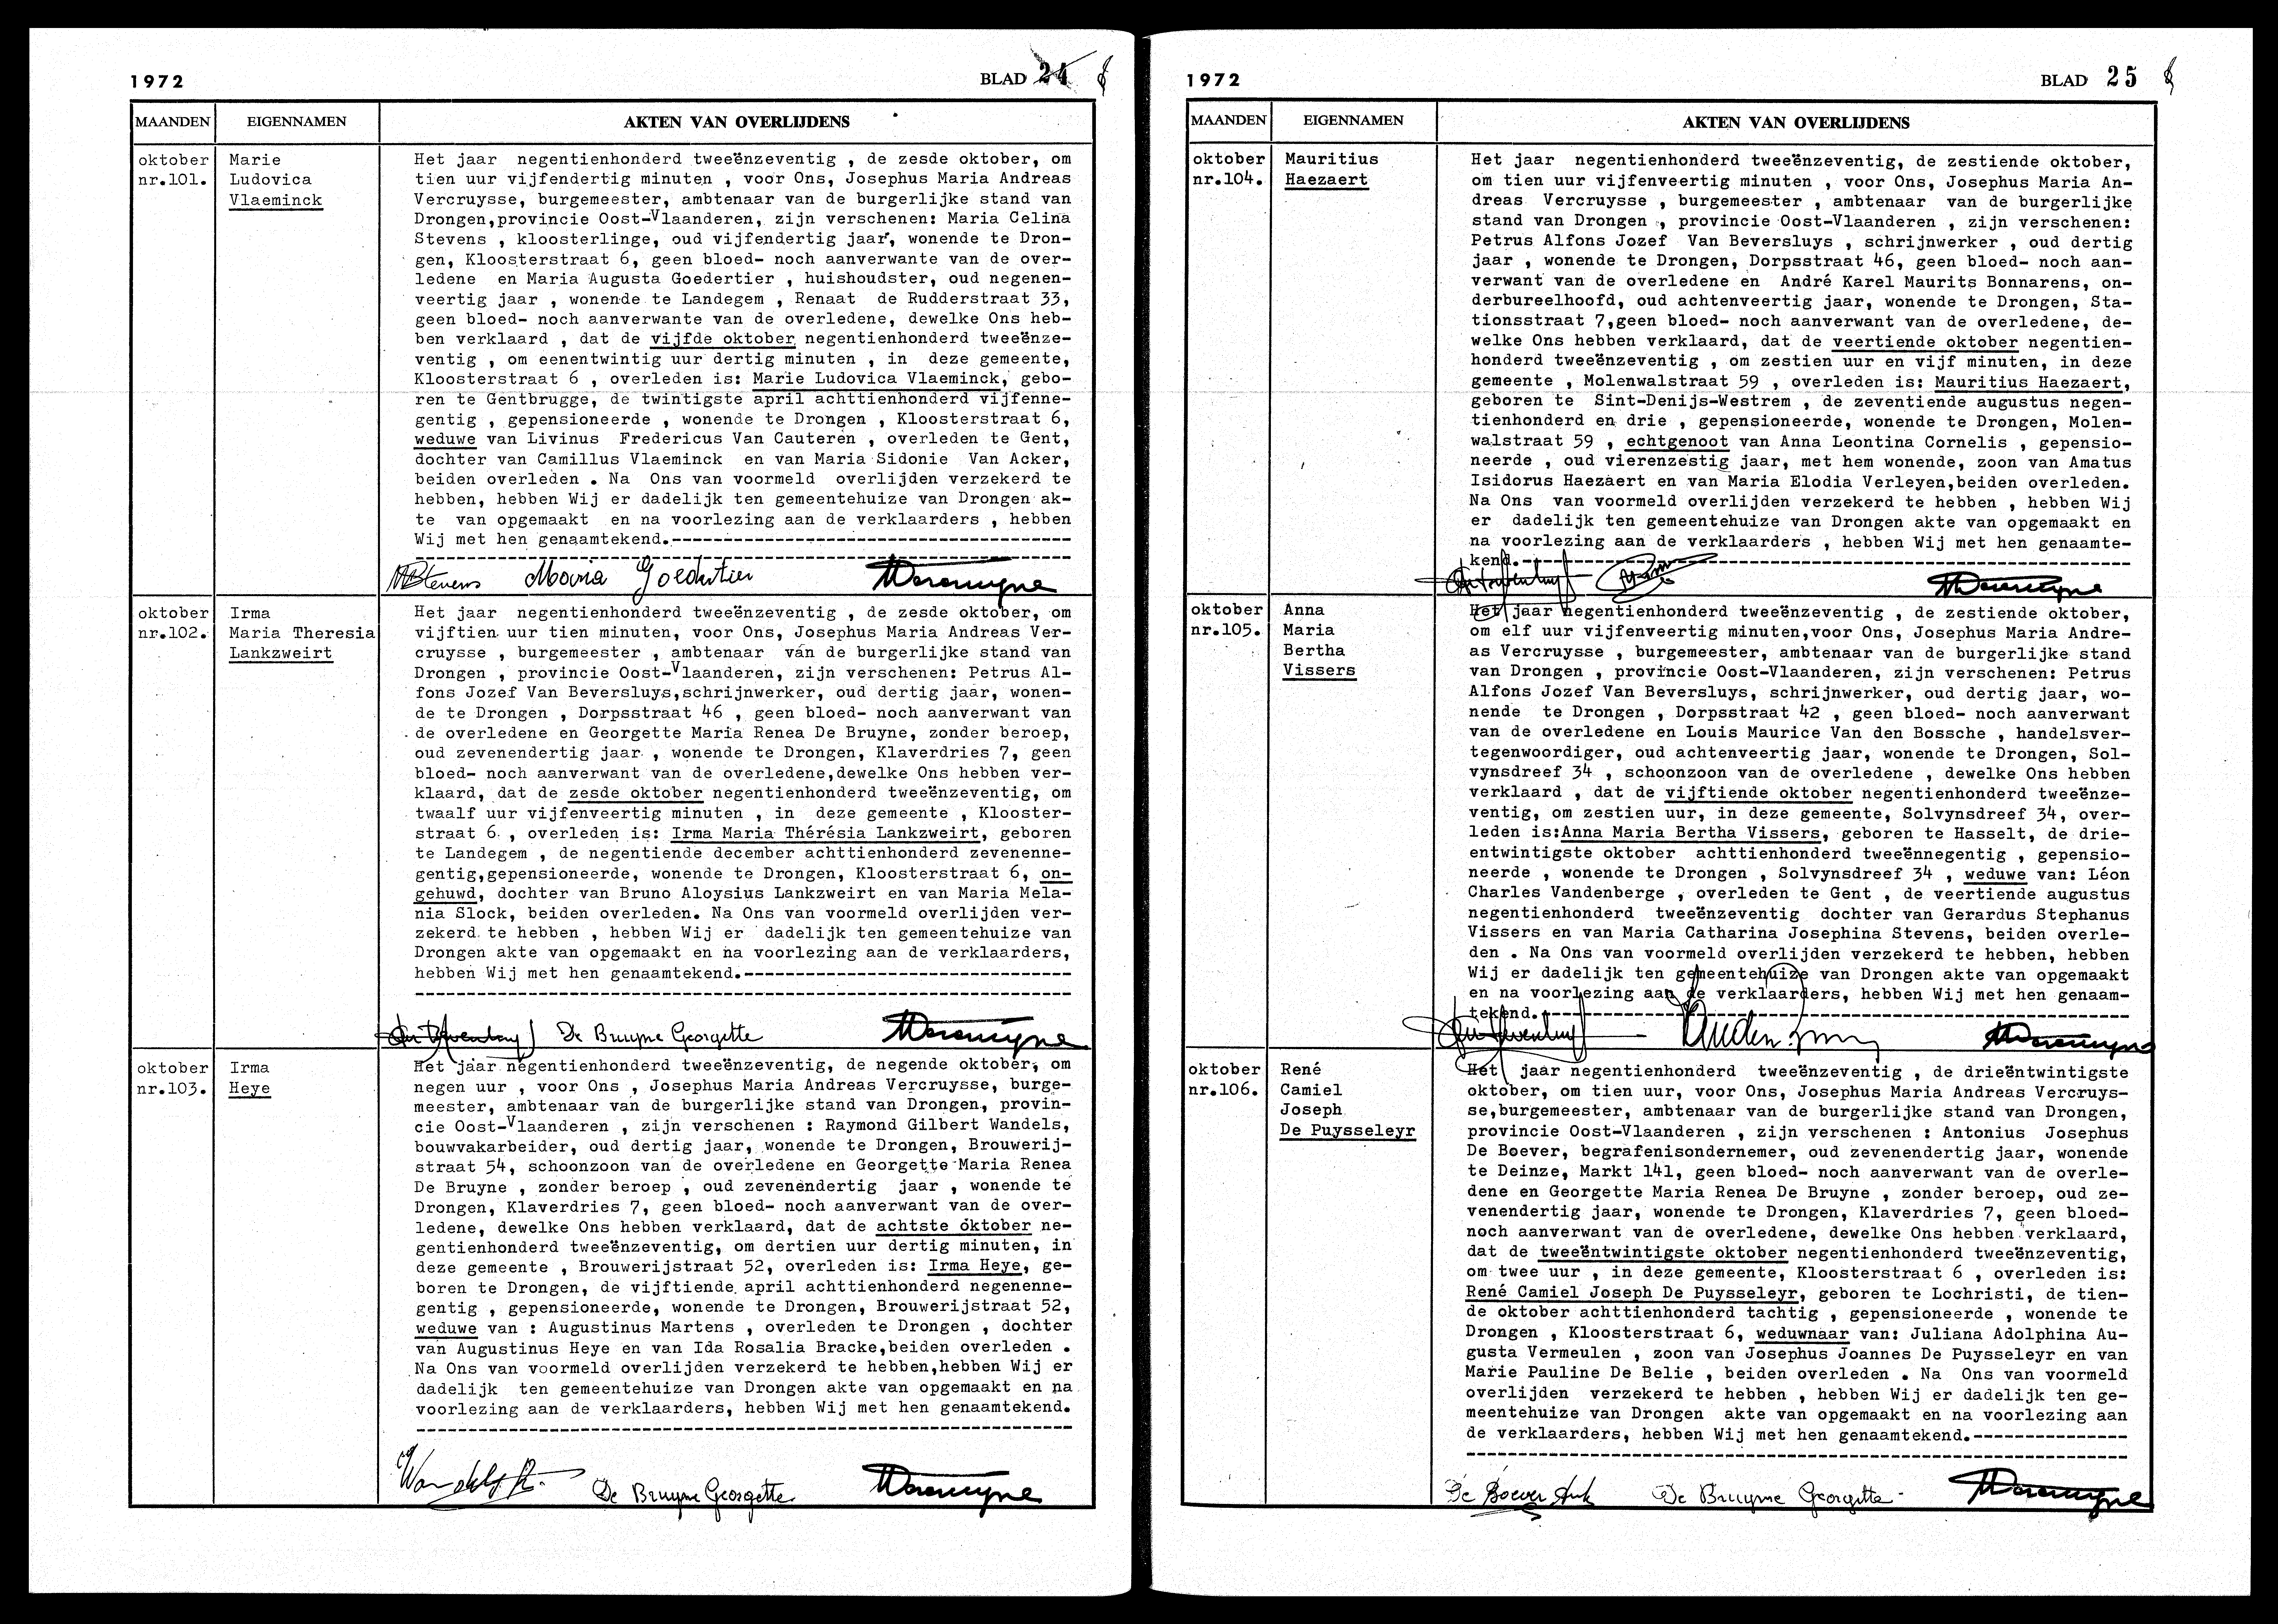 1972
BLAD 24
MAANDEN
EIGENNAMEN
AKTEN VAN OVERLIJDENS
oktober
nr.101.
Marie
Ludovica
Vlaeminck
Het jaar negentienhonderd tweeënzeventig , de zesde oktober, om
tien uur vijfendertig minuten , voor Ons, Josephus Maria Andreas
Vercruysse, burgemeester, ambtenaar van de burgerlijke stand van
Drongen,provincie Oost-Vlaanderen, zijn verschenen: Maria Celina
Stevens , kloosterlinge, oud vijfendertig jaar, wonende te Dron-
gen, Kloosterstraat 6, geen bloed- noch aanverwante van de over-
ledene en Maria Augusta Goedertier , huishoudster, oud negenen-
veertig jaar , wonende te Landegem , Renaat de Rudderstraat 33,
geen bloed- noch aanverwante van de overledene, dewelke Ons heb-
ben verklaard , dat de vijfde oktober negentienhonderd tweeënze-
ventig , om eenentwintig uur dertig minuten , in deze gemeente,
Kloosterstraat 6 , overleden is: Marie Ludovica Vlaeminck, gebo-
ren te Gentbrugge, de twintigste april achttienhonderd vijfenne-
gentig , gepensioneerde , wonende te Drongen , Kloosterstraat 6,
weduwe van Livinus Fredericus Van Cauteren , overleden te Gent,
dochter van Camillus Vlaeminck en van Maria Sidonie Van Acker,
beiden overleden . Na Ons van voormeld overlijden verzekerd te
hebben, hebben Wij er dadelijk ten gemeentehuize van Drongen ak-
te van opgemaakt en na voorlezing aan de verklaarders , hebben
Wij met hen genaamtekend.-
MStevens Maria Goedertier
oktober
nr.102.
Irma
Maria Theresia
Lankzweirt
Het jaar negentienhonderd tweeënzeventig , de zesde oktober, om
vijftien uur tien minuten, voor Ons, Josephus Maria Andreas Ver-
cruysse , burgemeester , ambtenaar van de burgerlijke stand van
Drongen , provincie Oost-Vlaanderen, zijn verschenen: Petrus Al-
fons Jozef Van Beversluys,schrijnwerker, oud dertig jaar, wonen-
de te Drongen , Dorpsstraat 46 , geen bloed- noch aanverwant van
de overledene en Georgette Maria Renea De Bruyne, zonder beroep,
oud zevenendertig jaar , wonende te Drongen, Klaverdries 7, geen
bloed- noch aanverwant van de overledene,dewelke Ons hebben ver-
klaard, dat de zesde oktober negentienhonderd tweeënzeventig, om
twaalf uur vijfenveertig minuten , in deze gemeente , Klooster-
straat 6 , overleden is: Irma Maria Thérésia Lankzweirt, geboren
te Landegem , de negentiende december achttienhonderd zevenenne-
gentig,gepensioneerde, wonende te Drongen, Kloosterstraat 6, on-
gehuwd, dochter van Bruno Aloysius Lankzweirt en van Maria Mela-
nia Slock, beiden overleden. Na Ons van voormeld overlijden ver-
zekerd te hebben , hebben Wij er dadelijk ten gemeentehuize van
Drongen akte van opgemaakt en na voorlezing aan de verklaarders,
hebben Wij met hen genaamtekend.-
De Bruyne Georgette
oktober
nr.103.
Irma
Heye
Het jaar negentienhonderd tweeënzeventig, de negende oktober, om
negen uur , voor Ons , Josephus Maria Andreas Vercruysse, burge-
meester, ambtenaar van de burgerlijke stand van Drongen, provin-
cie Oost-Vlaanderen , zijn verschenen : Raymond Gilbert Wandels,
bouwvakarbeider, oud dertig jaar, wonende te Drongen, Brouwerij-
straat 54, schoonzoon van de overledene en Georgette Maria Renea
De Bruyne , zonder beroep , oud zevenendertig jaar , wonende te
Drongen, Klaverdries 7, geen bloed- noch aanverwant van de over-
ledene, dewelke Ons hebben verklaard, dat de achtste oktober ne-
gentienhonderd tweeënzeventig, om dertien uur dertig minuten, in
deze gemeente , Brouwerijstraat 52, overleden is: Irma Heye, ge-
boren te Drongen, de vijftiende april achttienhonderd negenenne-
gentig , gepensioneerde, wonende te Drongen, Brouwerijstraat 52,
weduwe van : Augustinus Martens , overleden te Drongen , dochter
van Augustinus Heye en van Ida Rosalia Bracke,beiden overleden .
Na Ons van voormeld overlijden verzekerd te hebben,hebben Wij er
dadelijk ten gemeentehuize van Drongen akte van opgemaakt en na
voorlezing aan de verklaarders, hebben Wij met hen genaamtekend.
Wandels R. De Bruyne Georgette
1972
BLAD 25
MAANDEN
EIGENNAMEN
AKTEN VAN OVERLIJDENS
oktober
nr.104.
Mauritius
Haezaert
Het jaar negentienhonderd tweeënzeventig, de zestiende oktober,
om tien uur vijfenveertig minuten , voor Ons, Josephus Maria An-
dreas Vercruysse , burgemeester , ambtenaar van de burgerlijke
stand van Drongen , provincie Oost-Vlaanderen , zijn verschenen:
Petrus Alfons Jozef Van Beversluys , schrijnwerker , oud dertig
jaar , wonende te Drongen, Dorpsstraat 46, geen bloed- noch aan-
verwant van de overledene en André Karel Maurits Bonnarens, on-
derbureelhoofd, oud achtenveertig jaar, wonende te Drongen, Sta-
tionsstraat 7,geen bloed- noch aanverwant van de overledene, de-
welke Ons hebben verklaard, dat de veertiende oktober negentien-
honderd tweeënzeventig , om zestien uur en vijf minuten, in deze
gemeente , Molenwalstraat 59 , overleden is: Mauritius Haezaert,
geboren te Sint-Denijs-Westrem , de zeventiende augustus negen-
tienhonderd en drie , gepensioneerde, wonende te Drongen, Molen-
walstraat 59 , echtgenoot van Anna Leontina Cornelis , gepensio-
neerde , oud vierenzestig jaar, met hem wonende, zoon van Amatus
Isidorus Haezaert en van Maria Elodia Verleyen,beiden overleden.
Na Ons van voormeld overlijden verzekerd te hebben , hebben Wij
er dadelijk ten gemeentehuize van Drongen akte van opgemaakt en
na voorlezing aan de verklaarders , hebben Wij met hen genaamte-
kend.-
oktober
nr.105.
Anna
Maria
Bertha
Vissers
Het jaar negentienhonderd tweeënzeventig , de zestiende oktober,
om elf uur vijfenveertig minuten,voor Ons, Josephus Maria Andre-
as Vercruysse , burgemeester, ambtenaar van de burgerlijke stand
van Drongen , provincie Oost-Vlaanderen, zijn verschenen: Petrus
Alfons Jozef Van Beversluys, schrijnwerker, oud dertig jaar, wo-
nende te Drongen , Dorpsstraat 42 , geen bloed- noch aanverwant
van de overledene en Louis Maurice Van den Bossche , handelsver-
tegenwoordiger, oud achtenveertig jaar, wonende te Drongen, Sol-
vynsdreef 34 , schoonzoon van de overledene , dewelke Ons hebben
verklaard , dat de vijftiende oktober negentienhonderd tweeënze-
ventig, om zestien uur, in deze gemeente, Solvynsdreef 34, over-
leden is:Anna Maria Bertha Vissers, geboren te Hasselt, de drie-
entwintigste oktober achttienhonderd tweeënnegentig , gepensio-
neerde , wonende te Drongen , Solvynsdreef 34 , weduwe van: Léon
Charles Vandenberge , overleden te Gent , de veertiende augustus
negentienhonderd tweeënzeventig dochter van Gerardus Stephanus
Vissers en van Maria Catharina Josephina Stevens, beiden overle-
den . Na Ons van voormeld overlijden verzekerd te hebben, hebben
Wij er dadelijk ten gemeentehuize van Drongen akte van opgemaakt
en na voorlezing aan de verklaarders, hebben Wij met hen genaam-
tekend.-
oktober
nr.106.
René
Camiel
Joseph
De Puysseleyr
Het jaar negentienhonderd tweeënzeventig , de drieëntwintigste
oktober, om tien uur, voor Ons, Josephus Maria Andreas Vercruys-
se,burgemeester, ambtenaar van de burgerlijke stand van Drongen,
provincie Oost-Vlaanderen , zijn verschenen : Antonius Josephus
De Boever, begrafenisondernemer, oud zevenendertig jaar, wonende
te Deinze, Markt 141, geen bloed- noch aanverwant van de overle-
dene en Georgette Maria Renea De Bruyne , zonder beroep, oud ze-
venendertig jaar, wonende te Drongen, Klaverdries 7, geen bloed-
noch aanverwant van de overledene, dewelke Ons hebben verklaard,
dat de tweeëntwintigste oktober negentienhonderd tweeënzeventig,
om twee uur , in deze gemeente, Kloosterstraat 6 , overleden is:
René Camiel Joseph De Puysseleyr, geboren te Lochristi, de tien-
de oktober achttienhonderd tachtig , gepensioneerde , wonende te
Drongen , Kloosterstraat 6, weduwnaar van: Juliana Adolphina Au-
gusta Vermeulen , zoon van Josephus Joannes De Puysseleyr en van
Marie Pauline De Belie , beiden overleden . Na Ons van voormeld
overlijden verzekerd te hebben , hebben Wij er dadelijk ten ge-
meentehuize van Drongen akte van opgemaakt en na voorlezing aan
de verklaarders, hebben Wij met hen genaamtekend.-
De Boever Ant De Bruyne Georgette